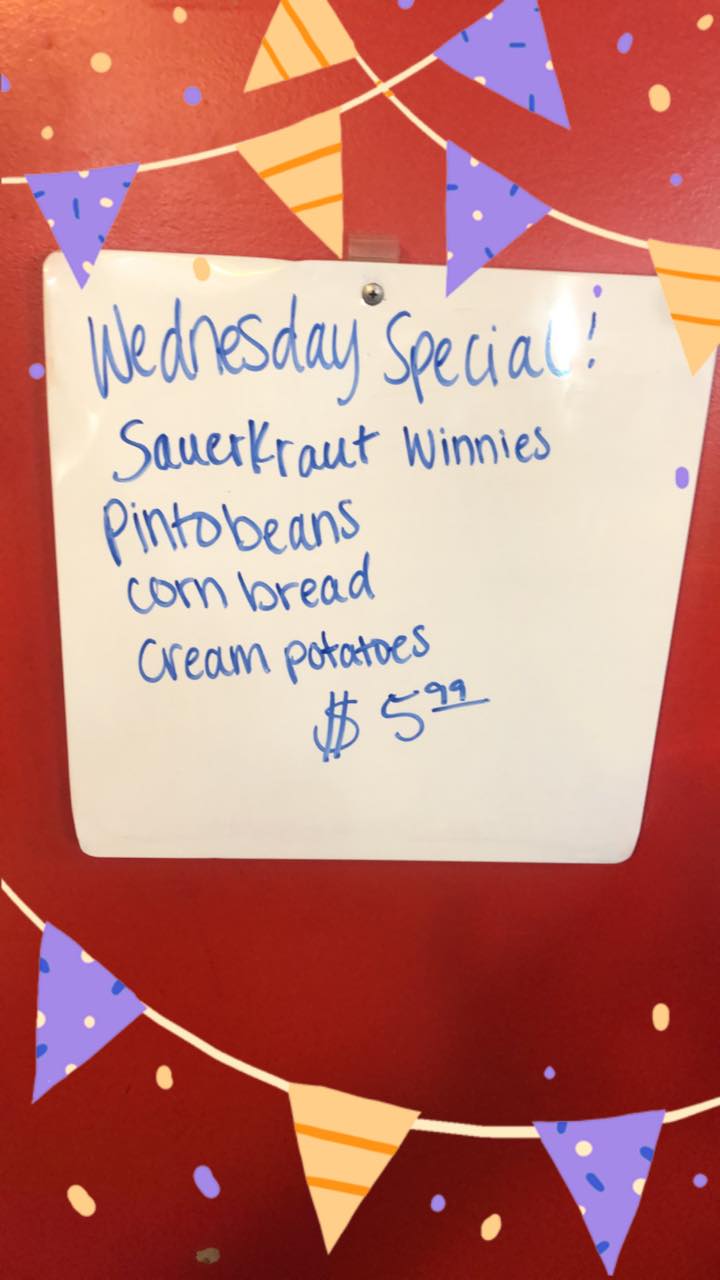 Wednesday Special!
Sauerkraut Winnies
Pinto beans
corn bread
Cream potatoes
$ 5.99